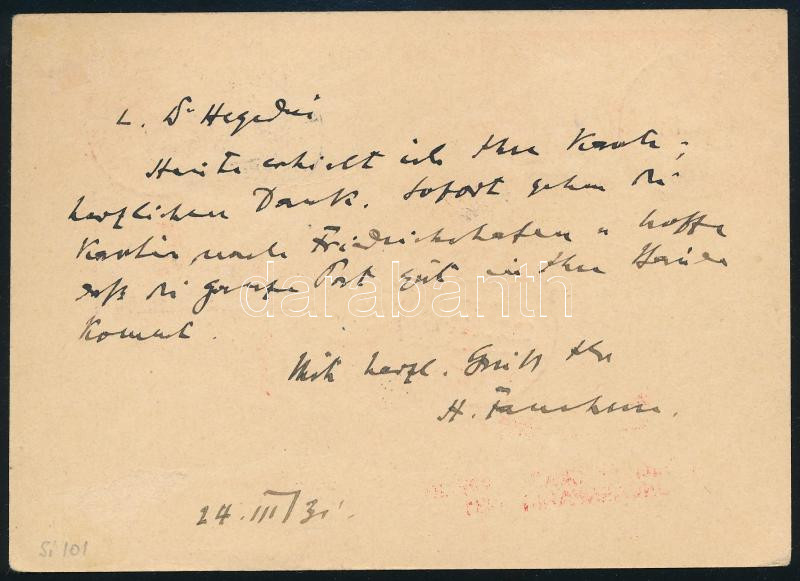 L. Dr Hegedüs
Heute erhielt ich Ihre Karte,
herzlichen Dank. Sofort gehen die
Karten nach Friedrichshafen u hoffe
daß die ganze Post gut in Ihre Hände
kommt.
Mit herzl. Gruß Ihr
H.
24. III/31.
Si 101
darabanth